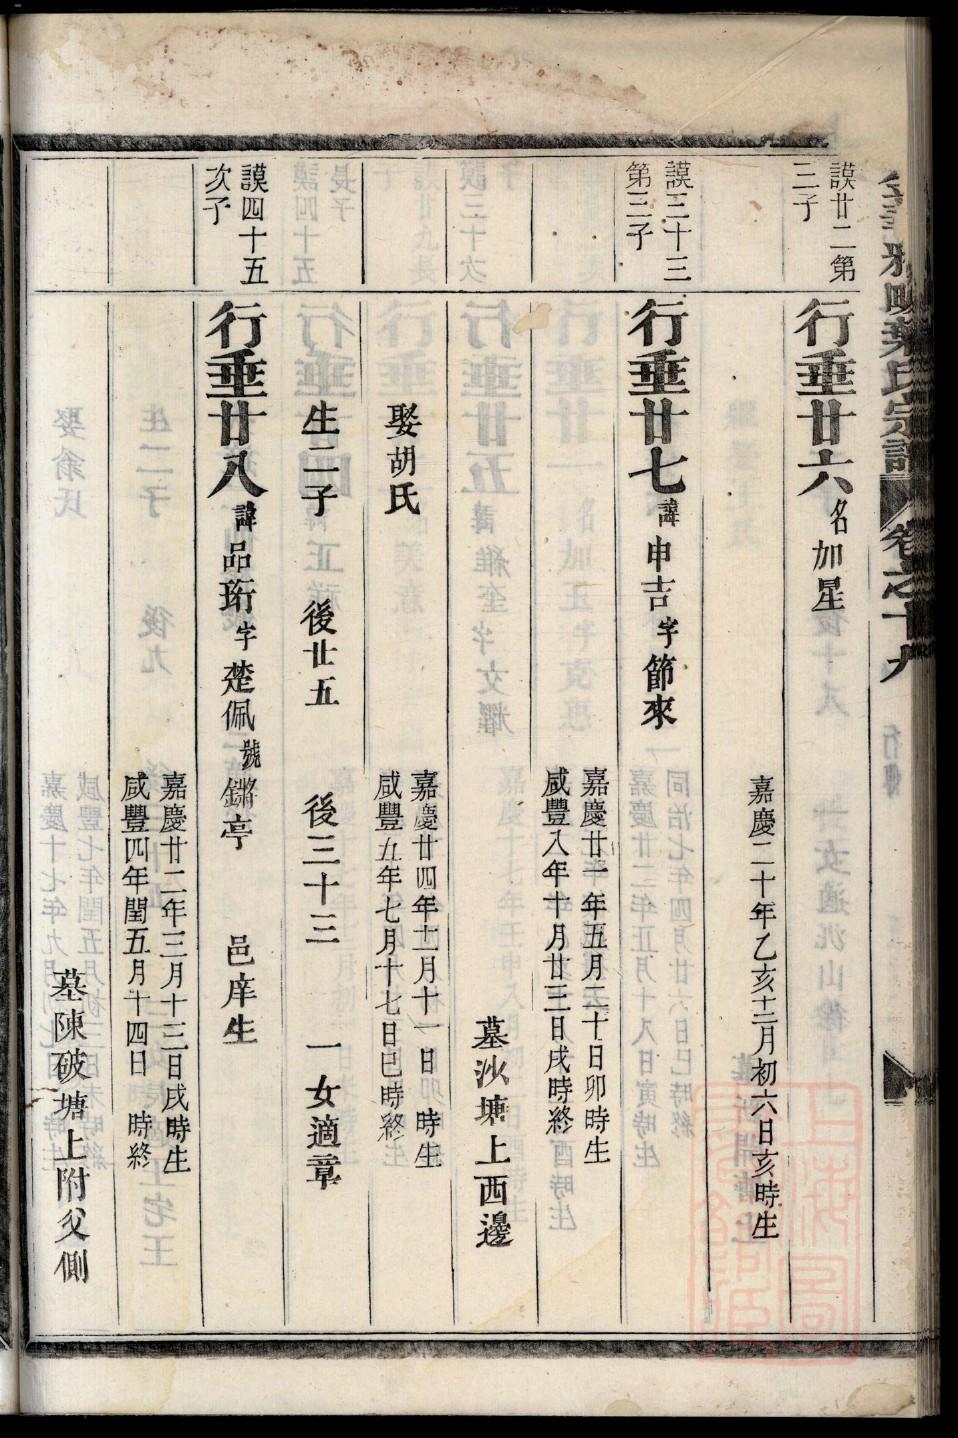 葉氏宗譜
卷之十九
謨廿二第
三子
行垂廿六 名加星
嘉慶二十年乙亥十二月初六日亥時生
謨三十三
第三子
行垂廿七 諱申吉字節來
嘉慶廿一年五月二十日卯時生
咸豐八年十月廿三日戌時終
墓沙塘上西邊
娶胡氏
嘉慶廿四年十二月十一日 時生
咸豐五年七月十七日巳時終
生二子 後廿五 後三十三 一女適章
謨四十五
次子
行垂廿八 諱品珩字楚佩號鏘亭 邑庠生
嘉慶廿二年三月十三日戌時生
咸豐四年閏五月十四日 時終
墓陳破塘上附父側